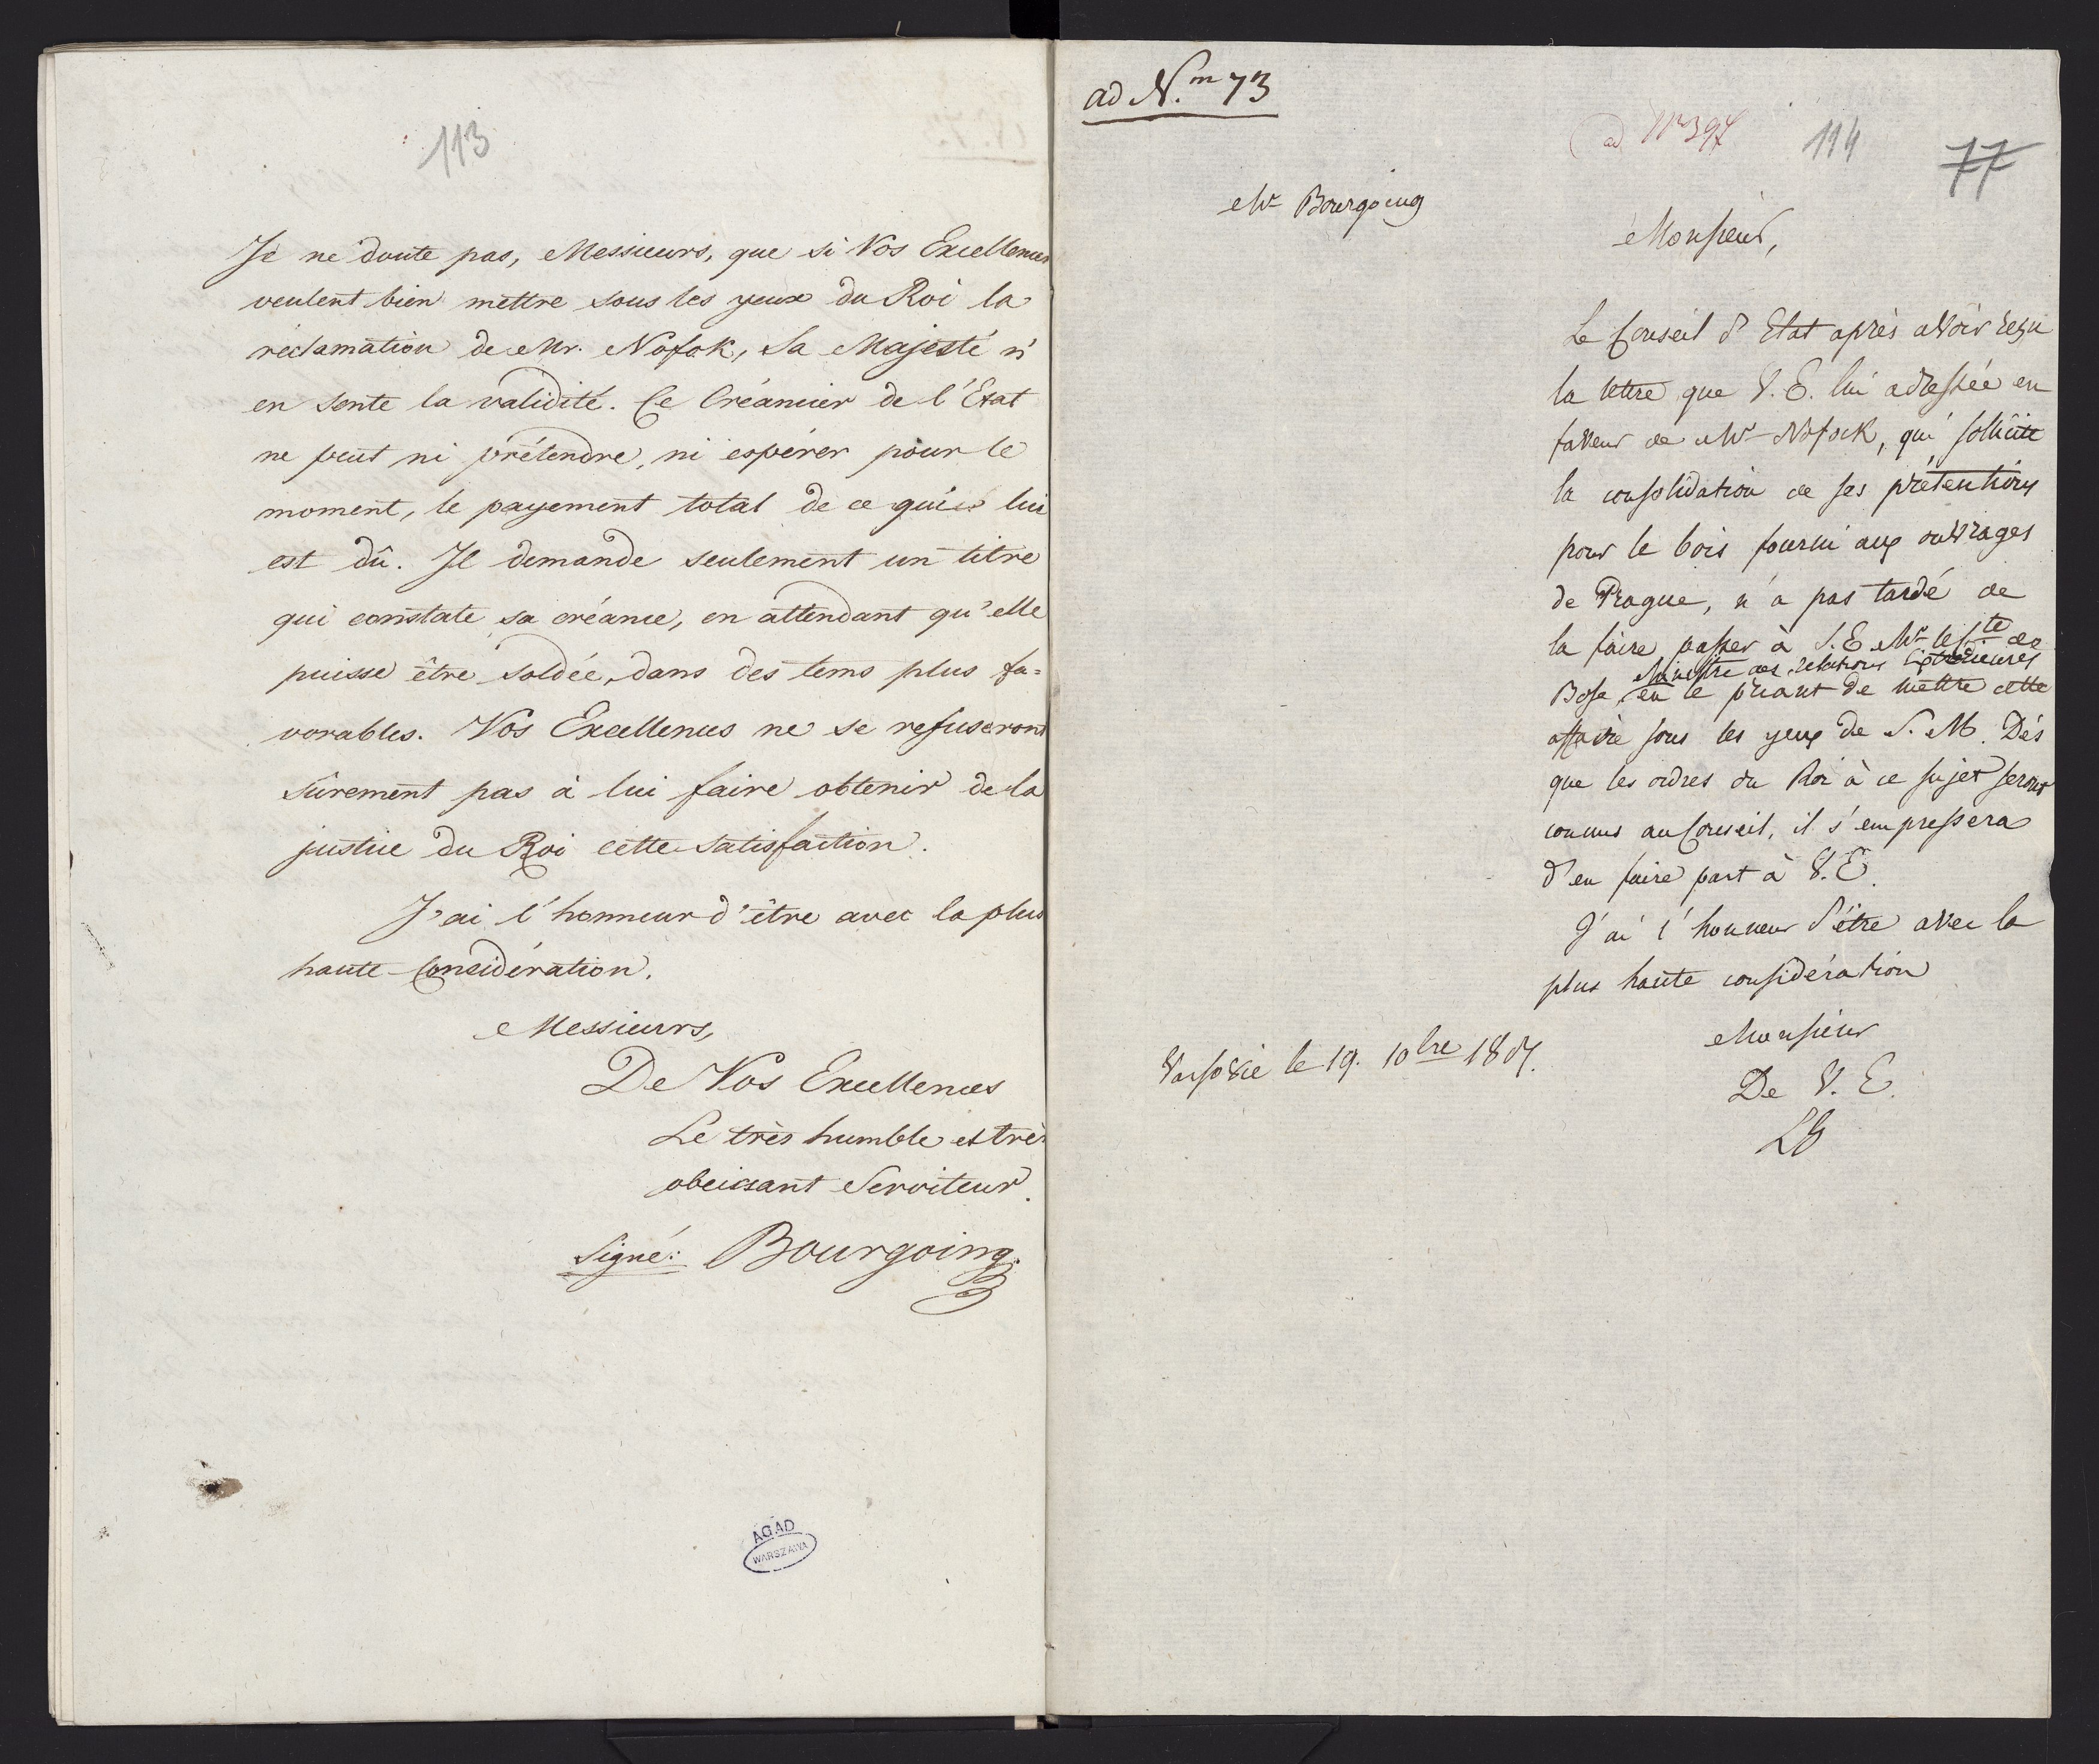 113
Je ne doute pas, Messieurs, que si Vos Excellences
veulent bien mettre sous les yeux du Roi la
réclamation de Mr. Nofok, Sa Majesté n'
en sente la validité. Ce Créancier de l'Etat
ne peut ni prétendre, ni espérer pour le
moment, le payement total de ce qui lui
est dû. Il demande seulement un titre
qui constate sa créance, en attendant qu'elle
puisse être soldée, dans des tems plus fa-
vorables. Vos Excellences ne se refuseront
sûrement pas à lui faire obtenir de la
justice du Roi cette satisfaction.
J'ai l'honneur d'être avec la plus
haute Considération.
Messieurs,
De Vos Excellences
Le très humble et très
obeissant Serviteur.
Signé: Bourgoing.
AGAD
WARSZAWA
ad N.m 73
ad Nr 397
114
77
Mr Bourgoing
Monsieur,
Le Conseil d'Etat après avoir reçu
la lettre que V. E. lui adressée en
faveur de Mr Nofok, qui sollicite
la consolidation de ses prétentions
pour le bois fourni aux ouvrages
de Prague, n'a pas tardé de
la faire passer à S. E. Mr le Cte de
Ministre des relations Extérieures
Bose, en le priant de mettre cette
affaire sous les yeux de S. M. Dés
que les ordres du Roi à ce sujet seront
connus au Conseil, il s'empressera
d'en faire part à V. E.
J'ai l'honneur d'être avec la
plus haute considération
Monsieur
De V. E.
Varsovie le 19. 10bre 1807.